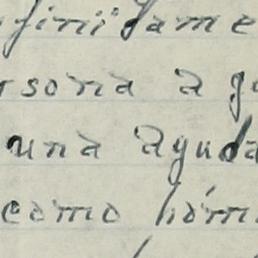 finidame
rsona a g
una ayuda
como hom